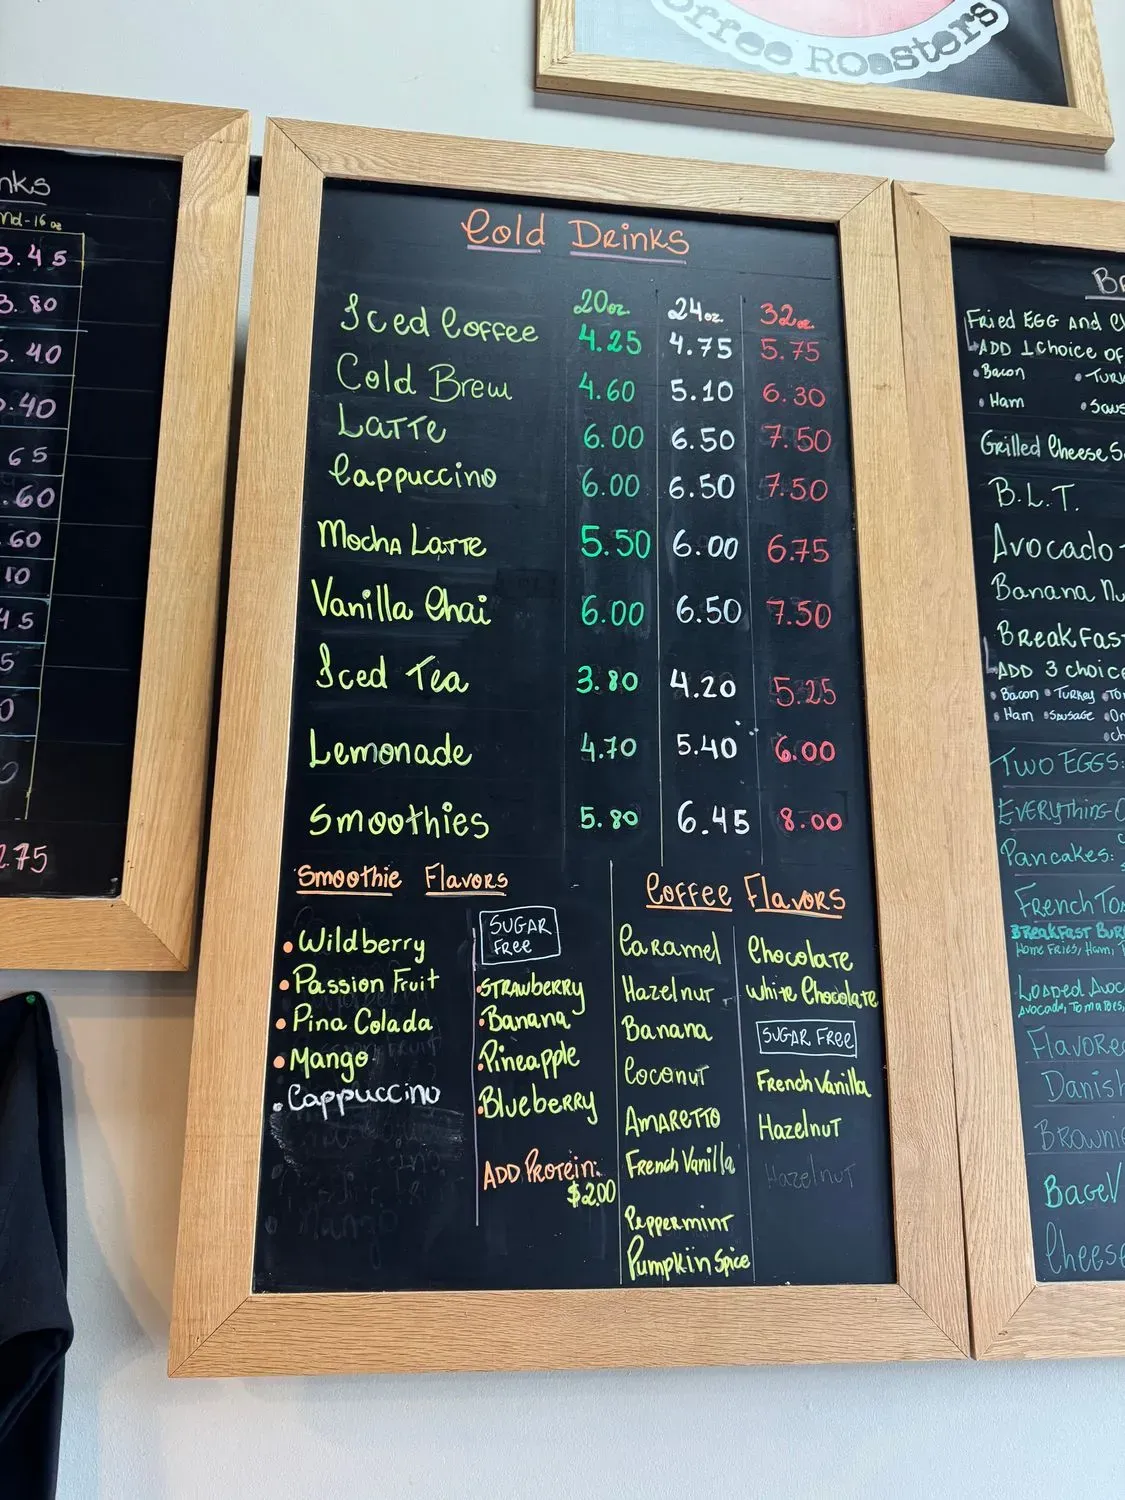 offee Roasters
nks
md-16 oz
3.45
3.80
5.40
.40
65
.60
.60
10
45
5
0
2.75
Cold Drinks
20oz. 24oz. 32oz
Iced Coffee 4.25 4.75 5.75
Cold Brew 4.60 5.10 6.30
Latte 6.00 6.50 7.50
Cappuccino 6.00 6.50 7.50
Mocha Latte 5.50 6.00 6.75
Vanilla Chai 6.00 6.50 7.50
Iced Tea 3.80 4.20 5.25
Lemonade 4.70 5.40 6.00
Smoothies 5.80 6.45 8.00
Smoothie Flavors
• Wildberry
• Passion Fruit
• Pina Colada
• Mango
• Cappuccino
SUGAR
FREE
• Strawberry
• Banana
• Pineapple
• Blueberry
ADD Protein:
$2.00
Coffee Flavors
Caramel
Hazelnut
Banana
Coconut
Amaretto
French Vanilla
Peppermint
Pumpkin Spice
Chocolate
White Chocolate
SUGAR FREE
French Vanilla
Hazelnut
Hazelnut
Fried EGG and
ADD 1 choice of
• Bacon • Turk
• Ham • Saus
Grilled Cheese S
B.L.T.
Avocado
Banana Nu
Breakfas
ADD 3 choice
• Bacon • Turkey • To
• Ham • Sausage • On
• ch
Two EGGS:
Everything
Pancakes:
French To
Breakfast Bur
Home Fries, Ham,
Loaded Avoc
Avocado, Tomatoes,
Flavore
Danish
Browni
Bagel
Cheese